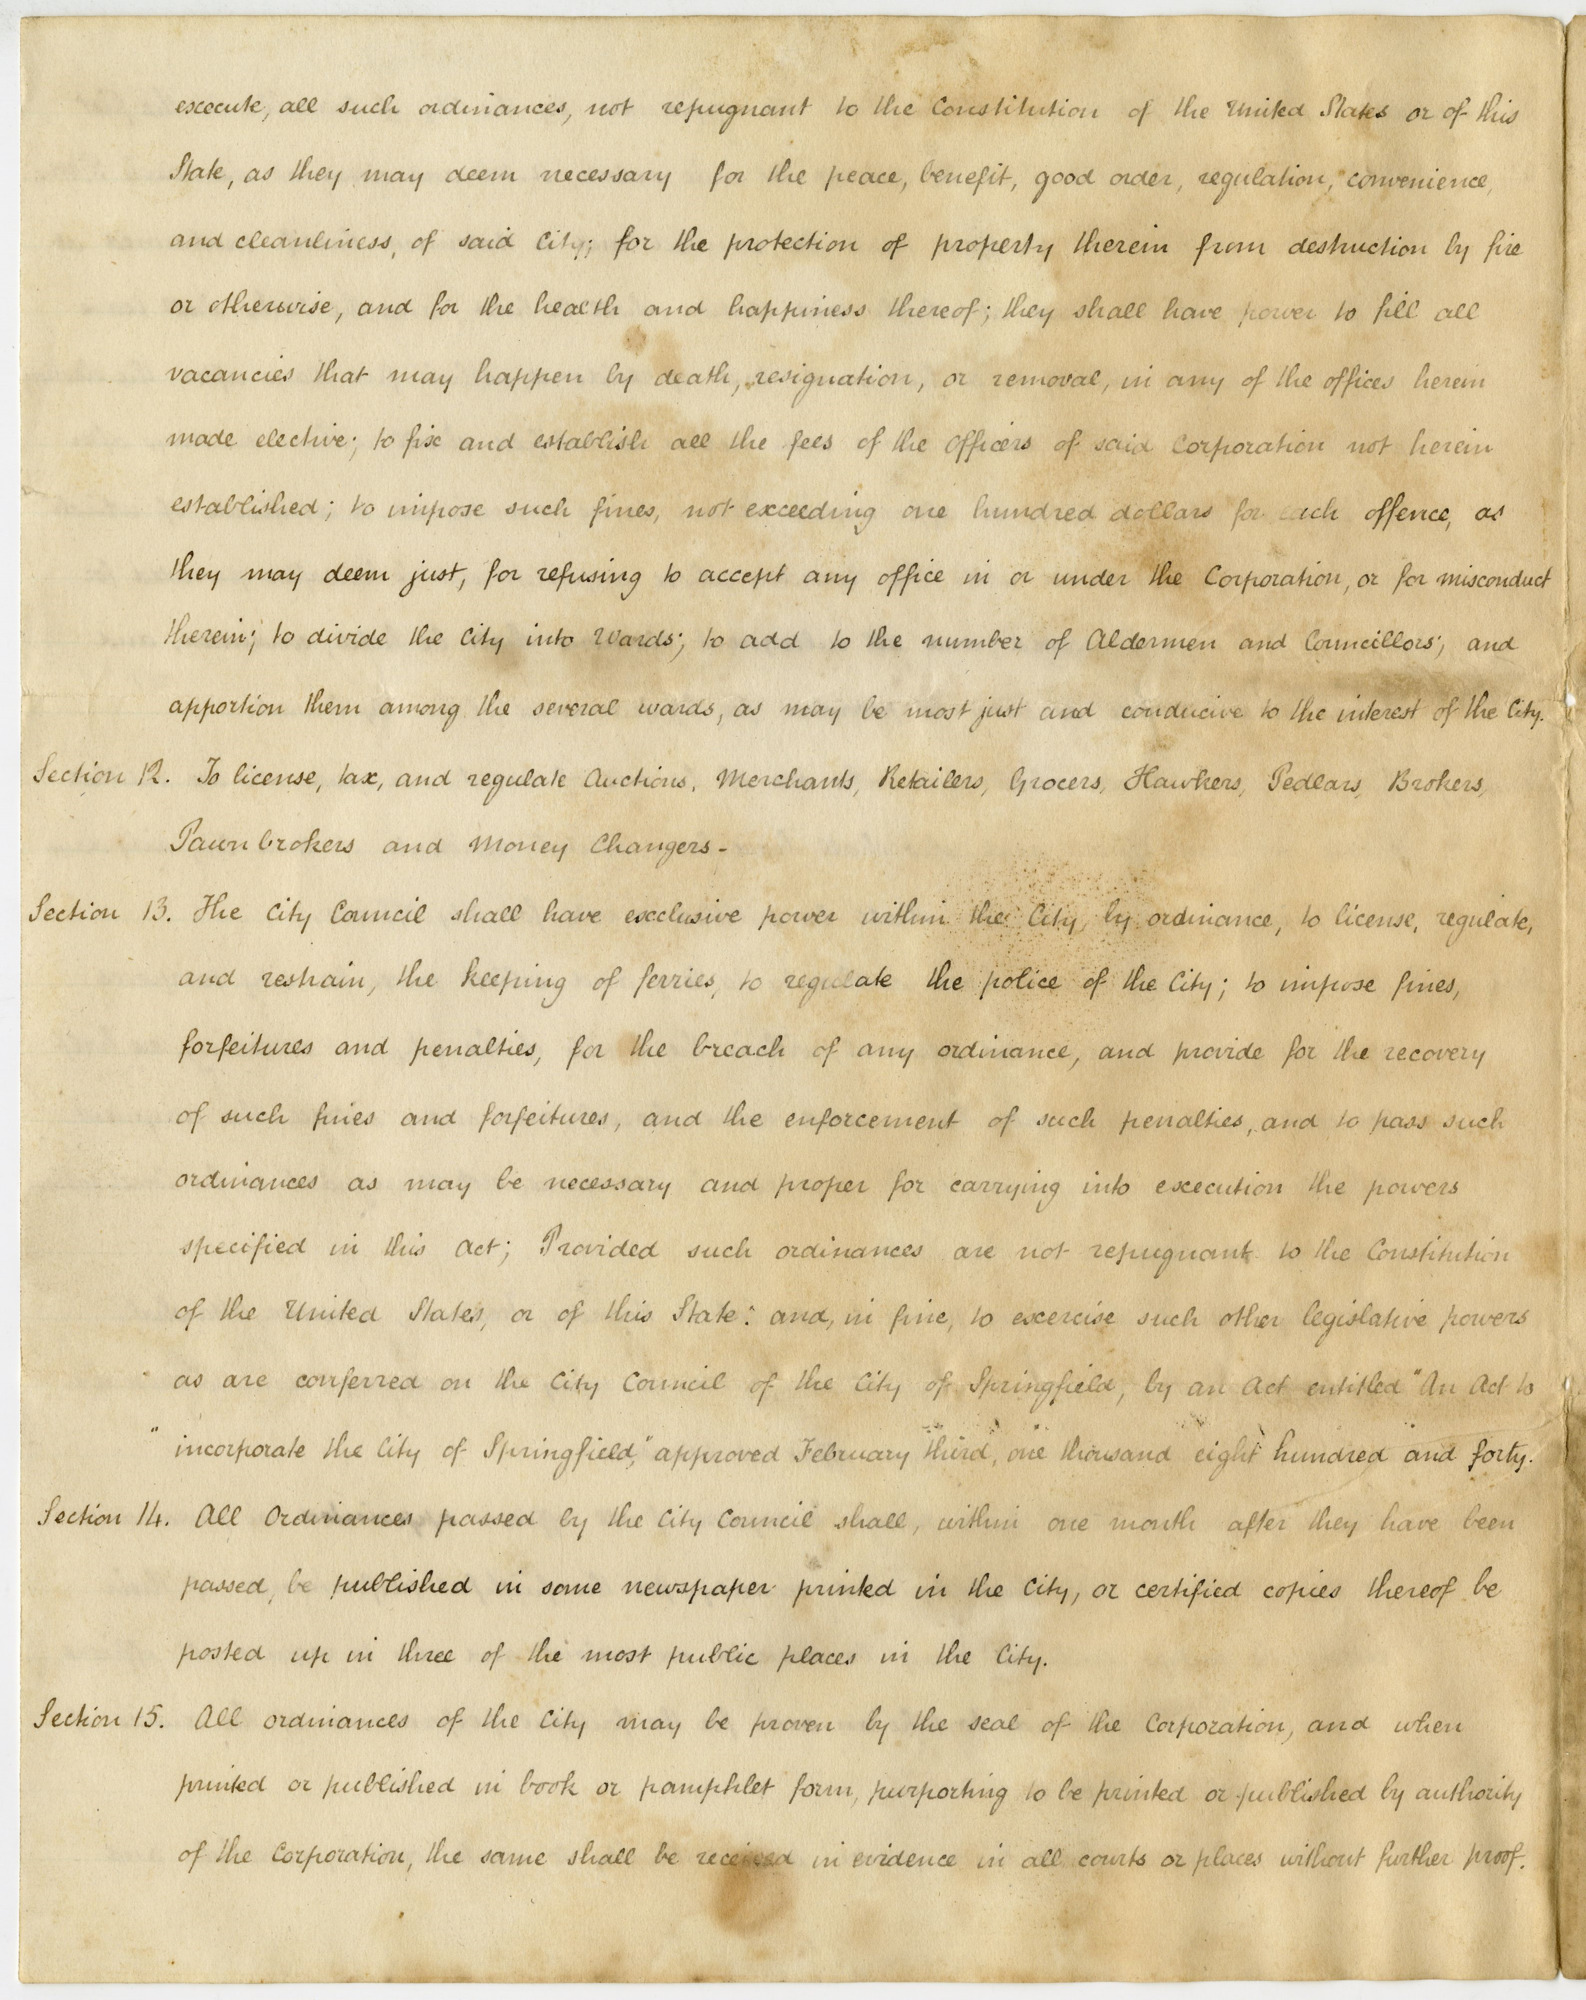 execute, all such ordinances, not repugnant to the Constitution of the United States or of this
State, as they may deem necessary for the peace, benefit, good order, regulation, convenience,
and cleanliness, of said City; for the protection of property therein from destruction by fire
or otherwise, and for the health and happiness thereof; they shall have power to fill all
vacancies that may happen by death, resignation, or removal, in any of the offices herein
made elective; to fix and establish all the fees of the officers of said Corporation not herein
established; to impose such fines, not exceeding one hundred dollars for each offence, as
they may deem just, for refusing to accept any office in or under the Corporation, or for misconduct
therein; to divide the City into Wards; to add to the number of Aldermen and Councillors; and
apportion them among the several wards, as may be most just and conducive to the interest of the City.
Section 12. To license, tax, and regulate Auctions, Merchants, Retailers, Grocers, Hawkers, Pedlars, Brokers,
Pawnbrokers and Money Changers-
Section 13. The City Council shall have exclusive power within the City, by ordinance, to license, regulate,
and restrain, the keeping of ferries, to regulate the police of the City; to impose fines,
forfeitures and penalties, for the breach of any ordinance, and provide for the recovery
of such fines and forfeitures, and the enforcement of such penalties, and to pass such
ordinances as may be necessary and proper for carrying into execution the powers
specified in this Act; Provided such ordinances are not repugnant to the Constitution
of the United States, or of this State: and, in fine, to exercise such other legislative powers
as are conferred on the City Council of the City of Springfield, by an Act entitled "An Act to
" incorporate the City of Springfield," approved February third, one thousand eight hundred and forty.
Section 14. All Ordinances passed by the City Council shall, within one month after they have been
passed, be published in some newspaper printed in the City, or certified copies thereof be
posted up in three of the most public places in the City.
Section 15. All ordinances of the City may be proven by the seal of the Corporation, and when
printed or published in book or pamphlet form, purporting to be printed or published by authority
of the Corporation, the same shall be received in evidence in all courts or places without further proof.